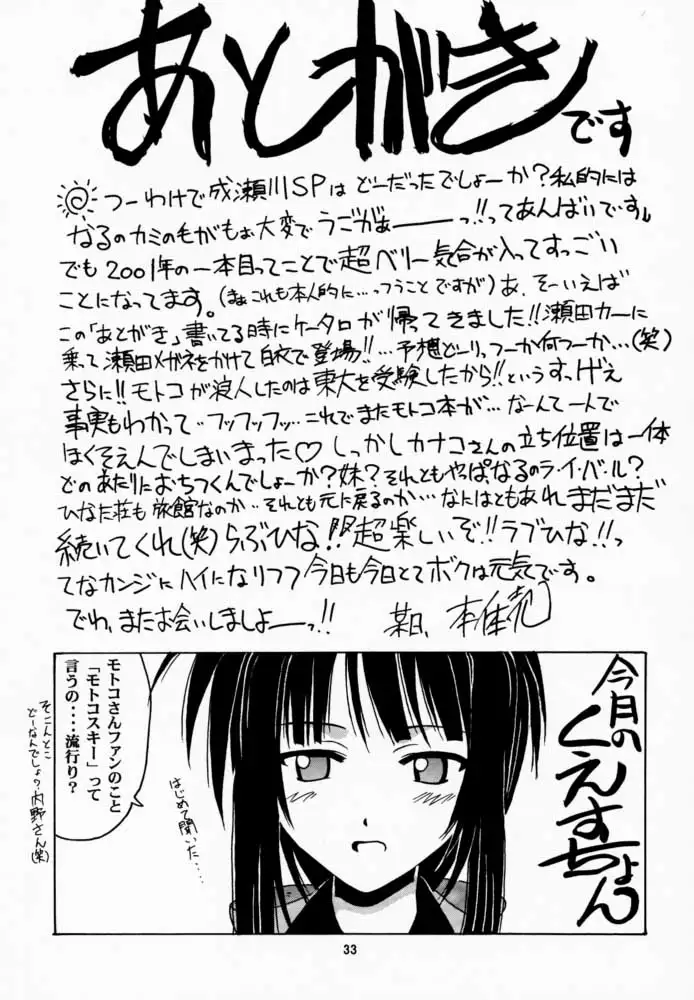 あとがき
です
つーわけで成瀬川SPはどーだったでしょーか?私的には
なるのカミの毛がもぉ大変でうごがぁーーっ!!ってあんばいです。
でも2001年の一本目ってことで超ベリー気合が入ってすっごい
ことになってます。(まぁこれも本人的に…っつうことですが)あ、そーいえば
この「あとがき」書いてる時にケータロが帰ってきました!!瀬田カーに
乗って瀬田メガネをかけて白衣で登場!!…予想どーりっつーか何つーか…(笑)
さらに!!モトコが浪人したのは東大を受験したから!!というすっげえ
事実もわかって…フッフッフッ…これでまたモトコ本が…なーんて一人で
ほくそえんでしまいまった♡しっかしカナコさんの立ち位置は一体
どのあたりにおちつくんでしょーか?妹?それともやぱなるのラ・イ・バ・ル?
ひなた荘も旅館なのか…それとも元に戻るのか…なにはともあれまだまだ
続いてくれ(笑)らぶひな!!超楽しいぞ!!ラブひな!!っ
てなカンジにハイになりつつ今日も今日とてボクは元気です。
でわ、またお会いしましょーーっ!!
今月のくえすちょん
モトコさんファンのこと
「モトコスキー」って
言うの....流行り?
はじめて聞いた...
そこんとこ
どーなんでしょ?内野さん(笑)
33